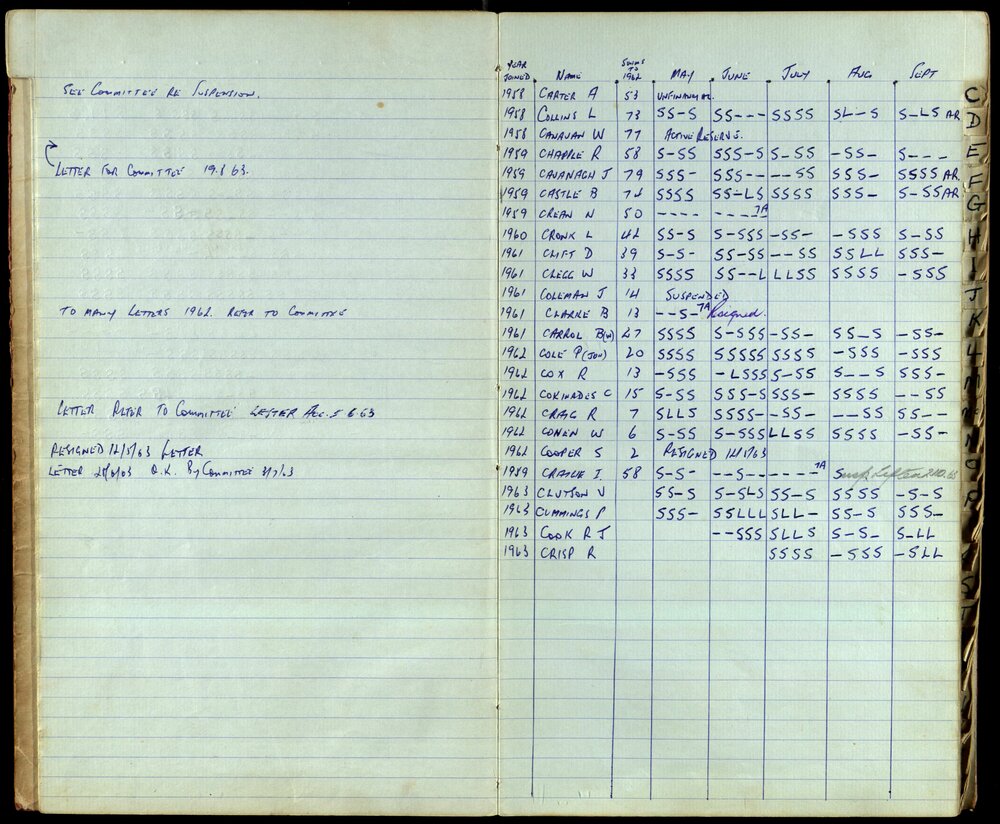 SEE COMMITTEE RE SUSPENSION.
LETTER FOR COMMITTEE 19.8.63.
TO MANY LETTERS 1962. REFER TO COMMITTEE
LETTER REFER TO COMMITTEE LETTER ACC. 5 6 63
RESIGNED 12/5/63 LETTER
O.K. BY COMMITTEE 3/7/63
YEAR JOINED NAME SWIMS TO 1962 MAY JUNE JULY AUG SEPT
1958 CARTER A 53 UNFINANCIAL.
1958 COLLINS L 73 SS-S SS--- SSSS SL--S S-LS AR
1958 CANAVAN W 77 ACTIVE RESERVE.
1959 CHAPPLE R 58 S-SS SSS-S S-SS -SS- S---
1959 CAVANAGH J 79 SSS- SSS-- --SS SSS- SSSS AR
1959 CASTLE B 74 SSSS SS-LS SSSS SSS- S-SS AR
1959 CREAN N 50 ---- ---- 7A
1960 CRONK L 42 SS-S S-SSS -SS- -SSS S-SS
1961 CLIFT D 39 S-S- SS-SS --SS SSLL SSS-
1961 CLEGG W 33 SSSS SS--L LLSS SSSS -SSS
1961 COLEMAN J 14 SUSPENDED
1961 CLARKE B 13 --S- 7A Resigned.
1961 CARROL B(W) 47 SSSS S-SSS -SS- SS-S -SS-
1962 COLE P (JNR) 20 SSSS SSSSS SSSS -SSS -SSS
1962 COX R 13 -SSS -LSSS S-SS S--S SSS-
1962 COKINADES C 15 S-SS SSS-S SSS- SSSS --SS
1962 CRAIG R 7 SLLS SSSS- -SS- --SS SS--
1962 COWEN W 6 S-SS S-SSS LLSS SSSS -SS-
1962 COOPER S 2 RESIGNED 12/5/63
1959 CRAIGIE I 58 S-S- --S-- ---- 7A Susp Lifted
1963 CLUTSON V SS-S S-SLS SS-S SSSS -S-S
1963 CUMMINGS P SSS- SSLLL SLL- SS-S SSS-
1963 COOK R J --SSS SLLS S-S- S-LL
1963 CRISP R SSSS -SSS -SLL
C
D
E
F
G
H
I
J
K
L
M
N
O
P
S
T